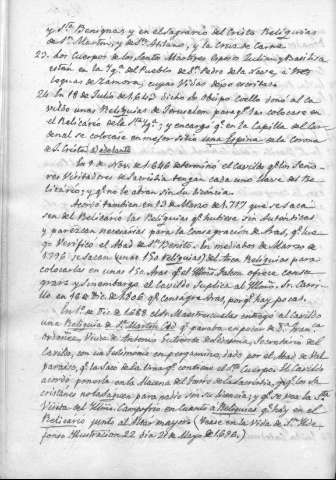 y Sta. Benigna; y en el Sagrario del Cristo Reliquias
de Sn. Martin, y de Sn. Atilano, y la Cruz de Carne
23. Los Cuerpos de los Santos Martires Esposos Julian y Basilisa
estan en la Yga. del Pueblo de Sn. Pedro de la Nave, á tres
leguas de Zamora, cuyas Vidas dejo escritas
24. En 18 de Julio de 1,643 dicho Sr. Obispo Coello donó al Ca-
vildo unas Reliquias de Jerusalem para qe. las colocase en
el Relicario de la Sta. Yga.; y encargó qe. en la Capilla del Car-
denal se colocase en mejor sitio una Espina de la Corona
de J. Cristo
En 4 de Nov. de 1646 determinó el Cavildo qe. los Seño-
res Visitadores de Sacristia tengan cada uno llave del Re-
licario; y qe. no le abran sin su licencia
Acordó tambien en 13 de Marzo de 1,717 que se sa-
sen del Relicario las Reliquias qe. hubiere sin Autenticas
y parezcan necesarias para la Consagracion de Aras, qe. lue-
go Verificó el Abad de Sn. Benito. En mediados de Marzo de
1796 se sacan (unas 150 reliquias) del Gran Relicario para
colocarlas en unas 150 Aras qe. el Illmo. ofrece consa-
grar; y sin embargo el Cavildo suplica al Illmo. Sr. Carri-
llo en 16 de Dic. de 1806 qe. consagre Aras, por qe. hay pocas.
En 1º. de Dic. de 1688 el Sr. Maestrescuelas entregó al Cavildo
una Reliquia de Sn. Martin Cid qe. paraba en poder de Da. Franca.
Ordoñez, Viuda de Antonio Gutierrez de , Secretario del
Cavildo, con un testimonio en pergamino, dado por el Abad de Val-
paraiso, qe. la sacó de la Urna qe. contiene el Sto. Cuerpo. El Cavildo
acordó ponerla en la Alacena del , y qe. los Sa-
cristanes no la saquen para nadie sin su licencia; y qe. se vea la Sta.
Visita del Illmo. Campofrio en cuanto á Reliquias qe. hay en el
Relicario junto al Altar mayor (Vease en la Vida de Sn. Ilde-
fonso Ilustracion 22 dia 21 de Mayo de 1,696.)